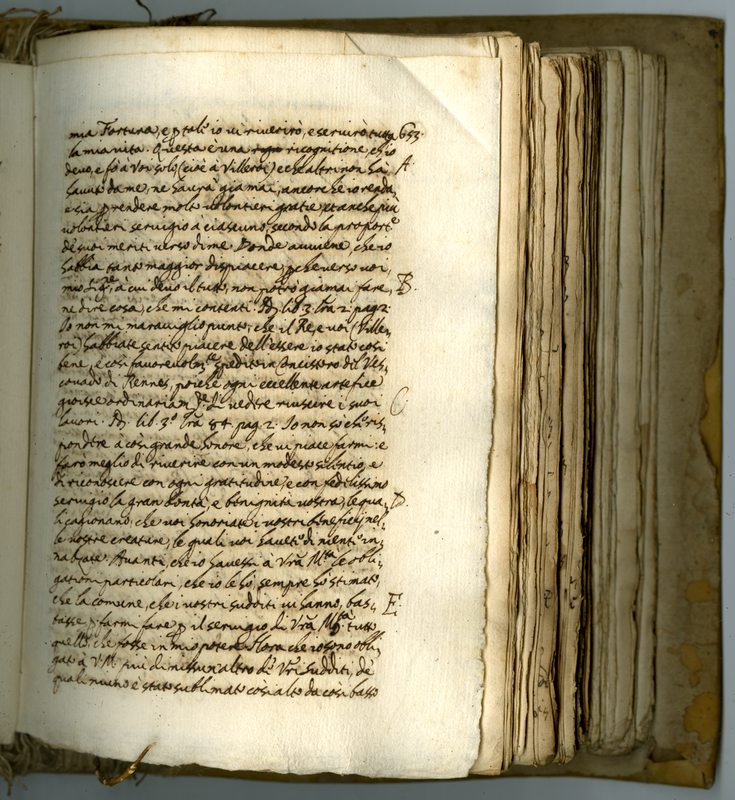 mia Fortuna, e p tali io vi riverirò, e servirò tutta 653.
la mia vita. Questa è una ricognitione, ch'io
devo, e fò à Voi solo (cioè à Villeroi) e che altri non ha A
havuto da me, ne haurà giamai, ancorche io renda,
e sia p rendere molto volontieri gratie, et anche più
volontieri servigio à ciascuno, secondo la proport.e
de' suoi meriti verso di me. Donde avviene, che io
habbia tanto maggior dispiacere, p che verso voi, B.
mio Sig.re, a cui devo il tutto, non potrò giamai fare,
ne dire cosa, che mi contenti. lib. 3. lra 2. pag. 2.
Io non mi maraviglio punto, che il Re, e voi (Ville,
roi) habbiate sentito piacere dell'essere io stato così
bene, e così favorevolm.te spedito in Concistoro del Ves,
covado di Rennes, poiche ogni eccellente artefice
gioisce ordinariam.te di vedere riuscire i suoi C
lavori. lib. 3.o lra 84. pag. 2. Io non sò che ris,
pondere à così grande honore, che vi piace farmi: e
farò meglio di riverire con un modesto silentio, e
di riconoscere con ogni gratitudine, e con fedelissimo
servigio la gran bontà, e benignità vostra, le qua, D.
li cagionano, che voi honoriate i vostri beneficij nel,
le vostre creature, le quali voi havete di niente in,
nalzate. Avanti, che io havessi à Vra M.tà le obli,
gationi particolari, che io le hò, sempre hò stimato,
che la comune, che i vostri sudditi vi hanno, bas, E.
tasse p farmi fare p il servigio di Vra M.tà tutto
quello, che fosse in mio potere. Hora che io sono obli,
gato à V. M. più di nessun'altro de' Vri sudditi, de'
quali niuno è stato sublimato così alto da così basso